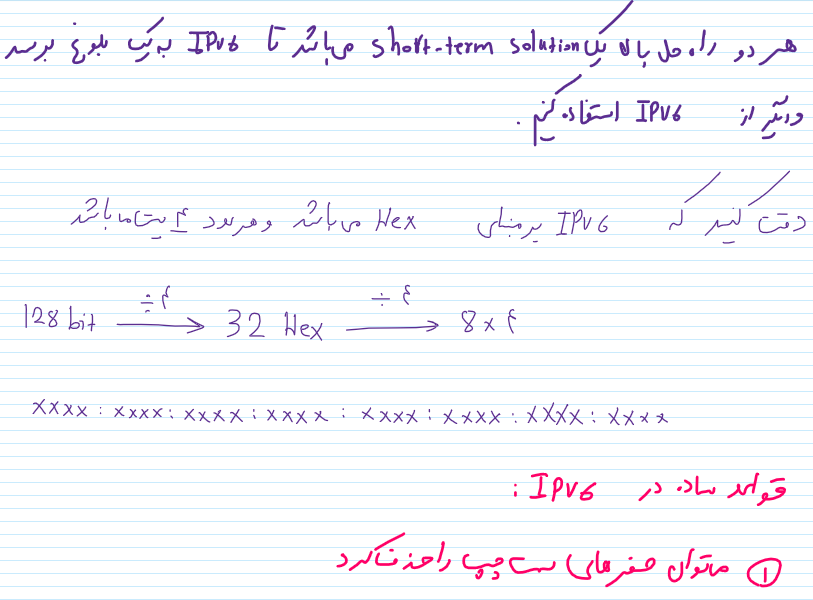 هر دو راه حل بالا یک short-term solution می باشد تا IPv6 به یک بلوغ برسد
و دیگر از IPv6 استفاده کنیم .
دقت کنید که IPv6 بر مبنای Hex می باشد و هر عدد ۴ بیت می باشد
128 bit ÷۴ → 32 Hex ÷۴ → 8 x ۴
xxxx : xxxx : xxxx : xxxx : xxxx : xxxx : xxxx : xxxx
قواعد ساده در IPv6 :
① میتوان صفرهای سمت چپ را حذف کرد